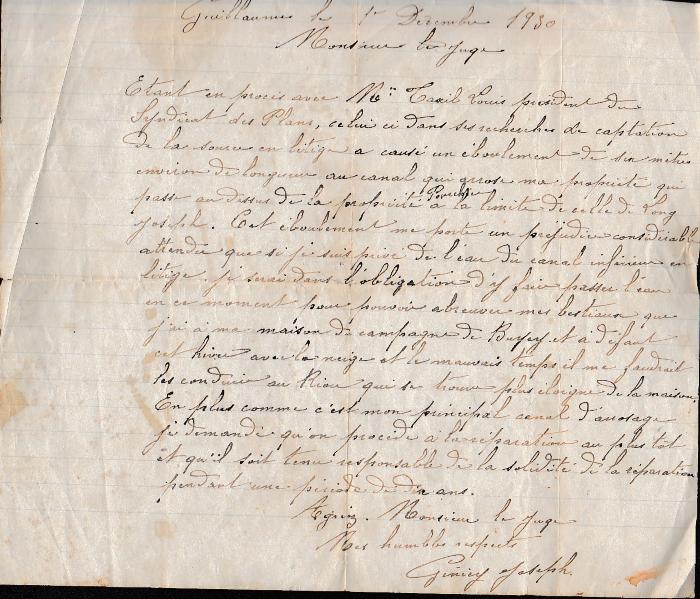 Guillaumes le 1er Décembre 1930
Monsieur le Juge
Etant en procès avec Mr Taxil Louis président du
Syndicat des Plans, celui ci dans ses recherches de captation
de la source en litige a causé un éboulement de six mètres
environ de longueur au canal qui arrose ma propriété qui
passe au dessus de la propriété à la limite de celle de Long
Joseph. Cet éboulement me porte un préjudice considérable
attendu que si je suis privé de l'eau du canal inférieur en
litige je serai dans l'obligation d'y faire passer l'eau
en ce moment pour pouvoir abreuver mes bestiaux que
j'ai à ma maison de campagne de et à défaut
cet hiver avec la neige et le mauvais temps il me faudrait
les conduire au Riou qui se trouve plus éloigné de la maison.
En plus comme c'est mon principal canal d'arrosage
je demande qu'on procède à la réparation au plus tôt
et qu'il soit tenu responsable de la solidité de la réparation
pendant une période de dix ans.
Agréez. Monsieur le Juge
Mes humbles respects
Joseph